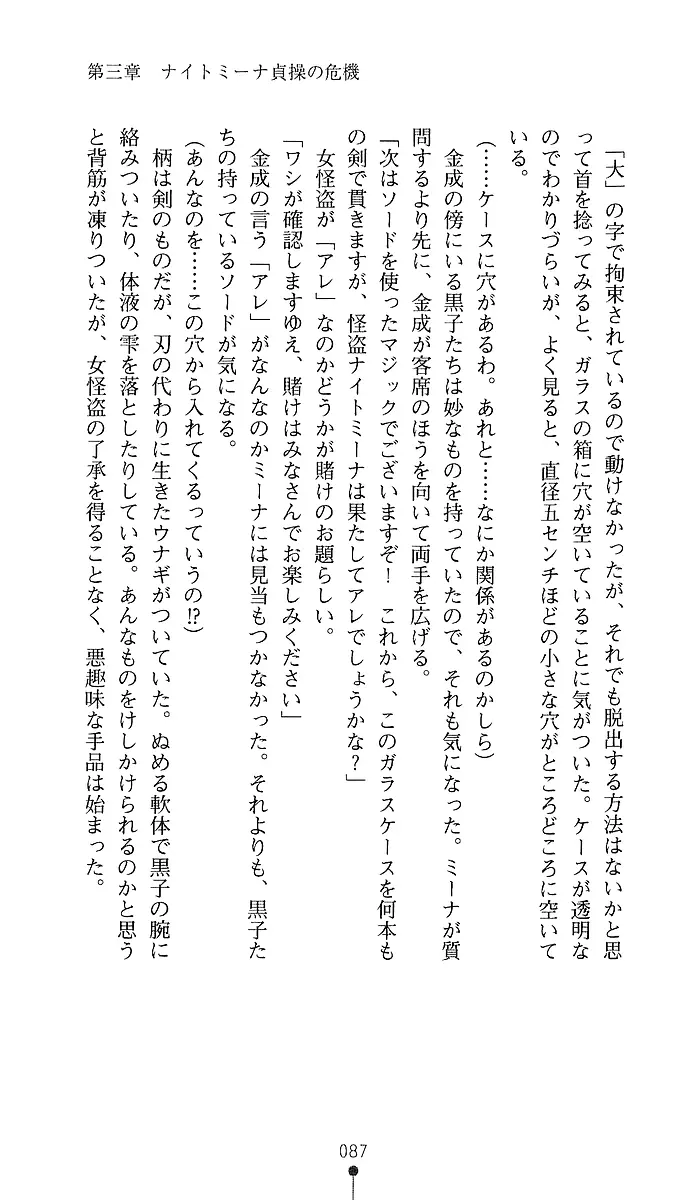 第三章　ナイトミーナ貞操の危機
「大」の字で拘束されているので動けなかったが、それでも脱出する方法はないかと思
って首を捻ってみると、ガラスの箱に穴が空いていることに気がついた。ケースが透明な
のでわかりづらいが、よく見ると、直径五センチほどの小さな穴がところどころに空いて
いる。
（……ケースに穴があるわ。あれと……なにか関係があるのかしら）
　金成の傍にいる黒子たちは妙なものを持っていたので、それも気になった。ミーナが質
問するより先に、金成が客席のほうを向いて両手を広げる。
「次はソードを使ったマジックでございますぞ！　これから、このガラスケースを何本も
の剣で貫きますが、怪盗ナイトミーナは果たしてアレでしょうかな？」
　女怪盗が「アレ」なのかどうかが賭けのお題らしい。
「ワシが確認しますゆえ、賭けはみなさんでお楽しみください」
　金成の言う「アレ」がなんなのかミーナには見当もつかなかった。それよりも、黒子た
ちの持っているソードが気になる。
（あんなのを……この穴から入れてくるっていうの⁉）
　柄は剣のものだが、刃の代わりに生きたウナギがついていた。ぬめる軟体で黒子の腕に
絡みついたり、体液の雫を落としたりしている。あんなものをけしかけられるのかと思う
と背筋が凍りついたが、女怪盗の了承を得ることなく、悪趣味な手品は始まった。
087